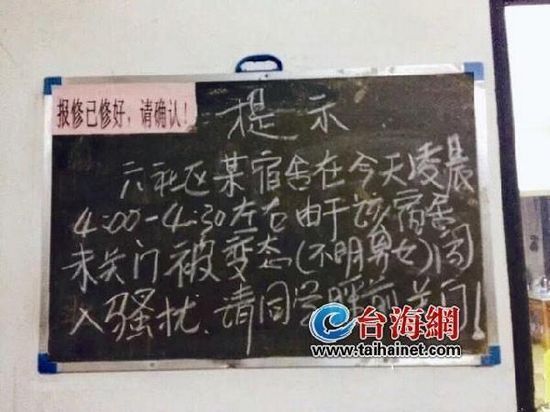 报修已修好，请确认！
提示
六社区某宿舍在今天凌晨
4:00-4:30左右由于该宿舍
未关门被变态(不明男女)闯
入骚扰.请同学睡前关门!
台海網
www.taihainet.com